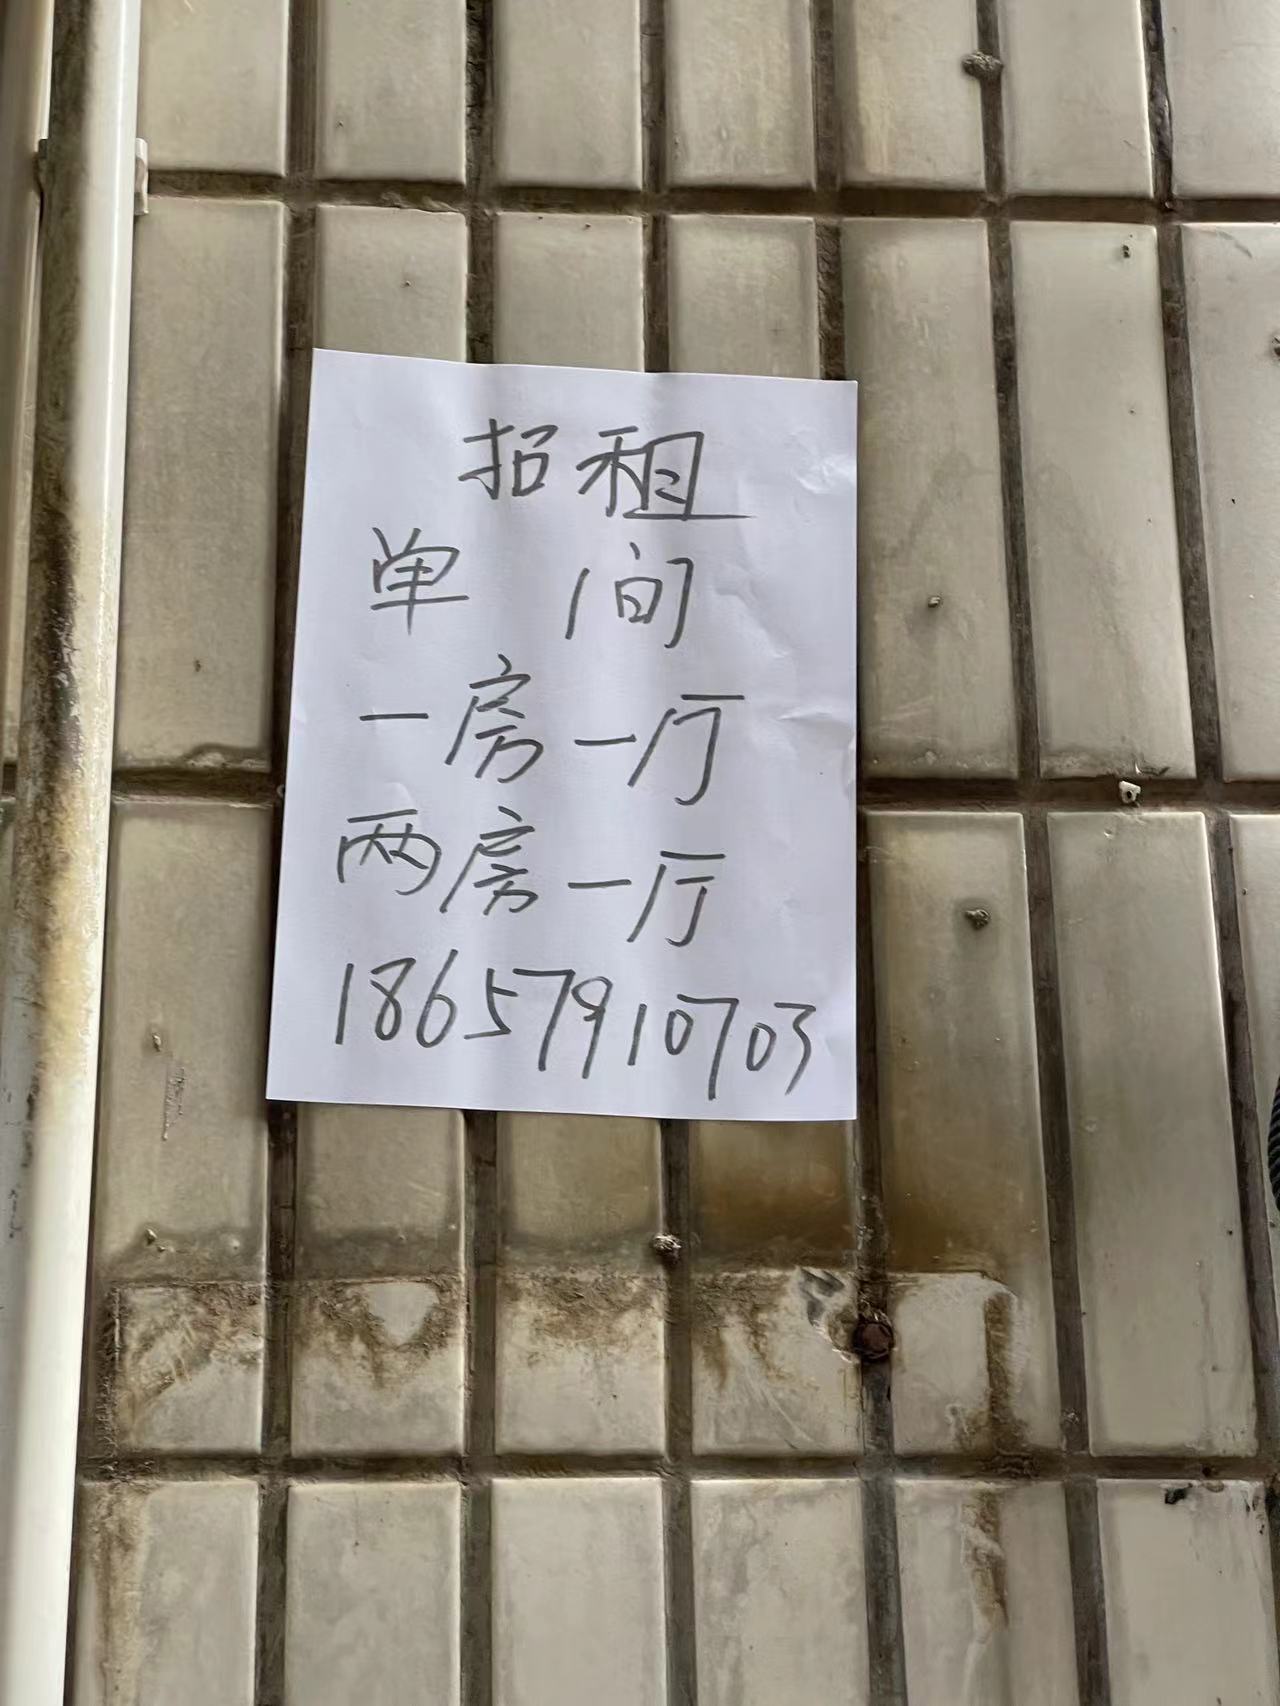 招租
单 间
一房一厅
两房一厅
18657910703